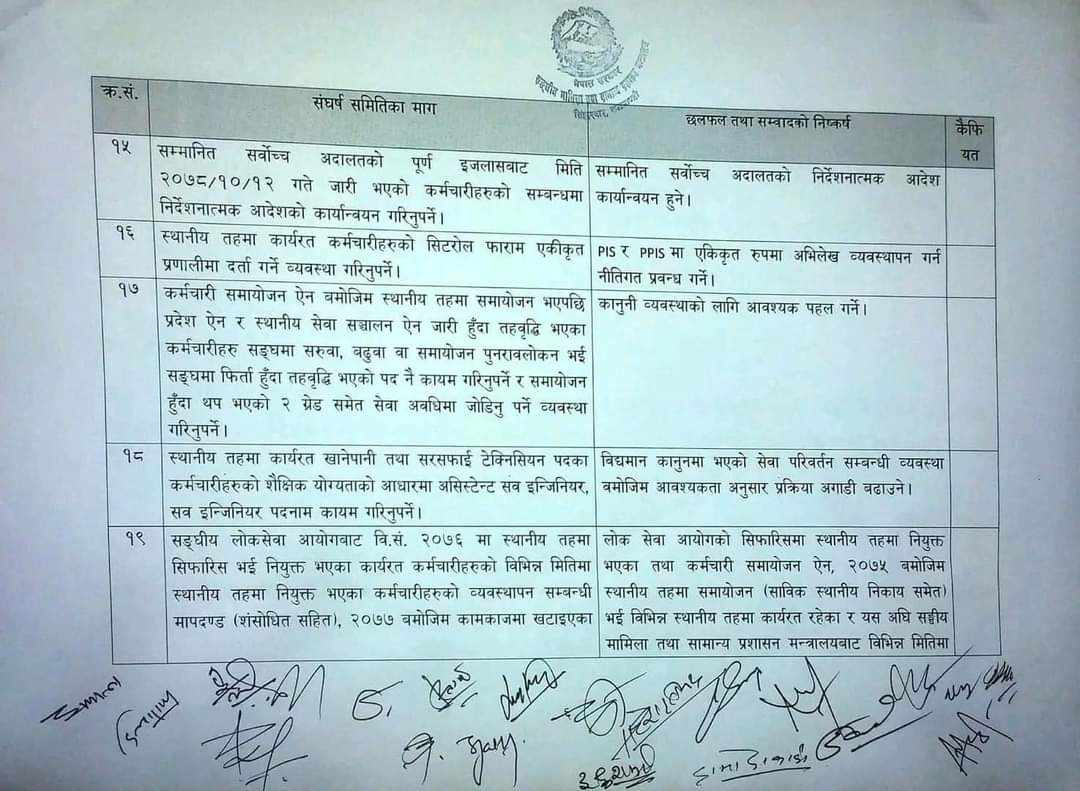 नेपाल सरकार
क्र.सं.
संघर्ष समितिका माग
छलफल तथा सम्वादको निष्कर्ष
कैफि
यत
१५
सम्मानित सर्वोच्च अदालतको पूर्ण इजलासबाट मिति
२०७८/१०/१२ गते जारी भएको कर्मचारीहरुको सम्बन्धमा
निर्देशनात्मक आदेशको कार्यान्वयन गरिनुपर्ने।
सम्मानित सर्वोच्च अदालतको निर्देशनात्मक आदेश
कार्यान्वयन हुने।
१६
स्थानीय तहमा कार्यरत कर्मचारीहरुको सिटरोल फाराम एकीकृत
प्रणालीमा दर्ता गर्ने व्यवस्था गरिनुपर्ने।
PIS र PPIS मा एकिकृत रुपमा अभिलेख व्यवस्थापन गर्न
नीतिगत प्रवन्ध गर्ने।
१७
कर्मचारी समायोजन ऐन बमोजिम स्थानीय तहमा समायोजन भएपछि
प्रदेश ऐन र स्थानीय सेवा सञ्चालन ऐन जारी हुँदा तहवृद्धि भएका
कर्मचारीहरु सङ्घमा सरुवा, बढुवा वा समायोजन पुनरावलोकन भई
सङ्घमा फिर्ता हुँदा तहवृद्धि भएको पद नै कायम गरिनुपर्ने र समायोजन
हुँदा थप भएको २ ग्रेड समेत सेवा अवधिमा जोडिनु पर्ने व्यवस्था
गरिनुपर्ने।
कानुनी व्यवस्थाको लागि आवश्यक पहल गर्ने।
१८
स्थानीय तहमा कार्यरत खानेपानी तथा सरसफाई टेक्निसियन पदका
कर्मचारीहरुको शैक्षिक योग्यताको आधारमा असिस्टेन्ट सव इन्जिनियर,
सव इन्जिनियर पदनाम कायम गरिनुपर्ने।
विद्यमान कानुनमा भएको सेवा परिवर्तन सम्बन्धी व्यवस्था
बमोजिम आवश्यकता अनुसार प्रक्रिया अगाडी बढाउने।
१९
सङ्घीय लोकसेवा आयोगबाट वि.सं. २०७६ मा स्थानीय तहमा
सिफारिस भई नियुक्त भएका कार्यरत कर्मचारीहरुको विभिन्न मितिमा
स्थानीय तहमा नियुक्त भएका कर्मचारीहरुको व्यवस्थापन सम्बन्धी
मापदण्ड (शंसोधित सहित), २०७७ बमोजिम कामकाजमा खटाइएका
लोक सेवा आयोगको सिफारिसमा स्थानीय तहमा नियुक्त
भएका तथा कर्मचारी समायोजन ऐन, २०७५ बमोजिम
स्थानीय तहमा समायोजन (साविक स्थानीय निकाय समेत)
भई विभिन्न स्थानीय तहमा कार्यरत रहेका र यस अघि सङ्घीय
मामिला तथा सामान्य प्रशासन मन्त्रालयबाट विभिन्न मितिमा